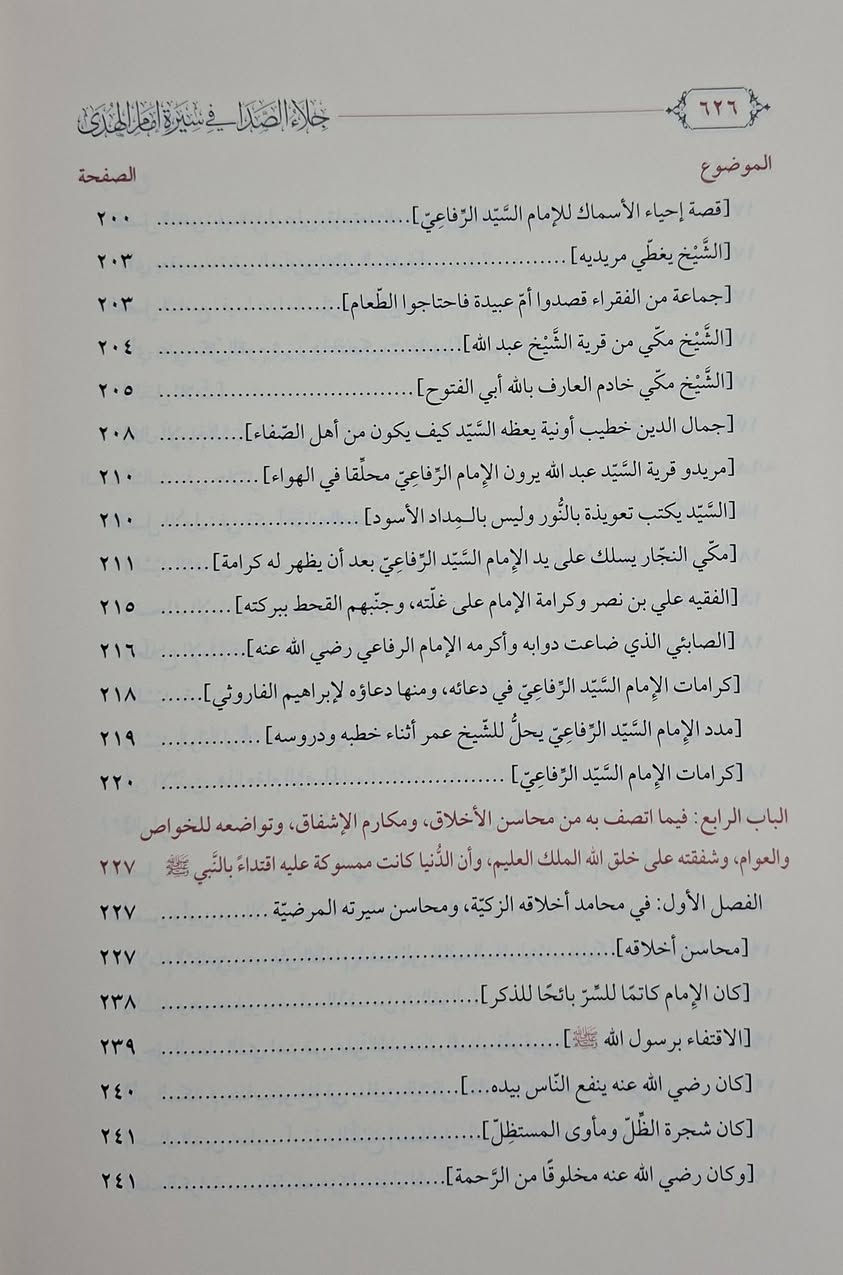 ٦٢٦ جلاء الصَّدَا في سيرة إمام الهُدَى
الموضوع الصفحة
[قصة إحياء الأسماك للإمام السَّيّد الرِّفاعِيّ].................................... ٢٠٠
[الشَّيْخ يغطّي مريديه] ..................................................... ٢٠٣
[جماعة من الفقراء قصدوا أمّ عبيدة فاحتاجوا الطّعام]......................... ٢٠٣
[الشَّيْخ مكّي من قرية الشَّيْخ عبد الله]........................................ ٢٠٤
[الشَّيْخ مكّي خادم العارف بالله أبي الفتوح] .................................. ٢٠٥
[جمال الدين خطيب أونية يعظه السَّيّد كيف يكون من أهل الصّفاء]............ ٢٠٨
[مريدو قرية السَّيّد عبد الله يرون الإمام الرِّفاعِيّ محلِّقا في الهواء] ............. ٢١٠
[السَّيّد يكتب تعويذة بالنُّور وليس بالـمِداد الأسود] ........................... ٢١٠
[مكّي النجّار يسلك على يد الإمام السَّيّد الرِّفاعِيّ بعد أن يظهر له كرامة]....... ٢١١
[الفقيه علي بن نصر وكرامة الإمام على غلّته، وجنّبهم القحط ببركته] .......... ٢١٥
[الصابئي الذي ضاعت دوابه وأكرمه الإمام الرفاعي رضي الله عنه]............ ٢١٦
[كرامات الإمام السَّيّد الرِّفاعِيّ في دعائه، ومنها دعاؤه لإبراهيم الفاروثي]...... ٢١٨
[مدد الإمام السَّيّد الرِّفاعِيّ يحلُّ للشّيخ عمر أثناء خطبه ودروسه] ............. ٢١٩
[كرامات الإمام السَّيّد الرِّفاعِيّ] ............................................. ٢٢٠
الباب الرابع: فيما اتصف به من محاسن الأخلاق، ومكارم الإشفاق، وتواضعه للخواص
والعوام، وشفقته على خلق الله الملك العليم، وأن الدُّنيا كانت ممسوكة عليه اقتداءً بالنَّبي ﷺ ٢٢٧
الفصل الأول: في محامد أخلاقه الزكيّة، ومحاسن سيرته المرضيّة .............. ٢٢٧
[محاسن أخلاقه]........................................................... ٢٢٧
[كان الإمام كاتمًا للسِّرّ بائحًا للذكر]......................................... ٢٣٨
[الاقتفاء برسول الله ﷺ].................................................... ٢٣٩
[كان رضي الله عنه ينفع النّاس بيده...]...................................... ٢٤٠
[كان شجرة الظِّلّ ومأوى المستظِلّ].......................................... ٢٤١
[وكان رضي الله عنه مخلوقًا من الرَّحمة]..................................... ٢٤١